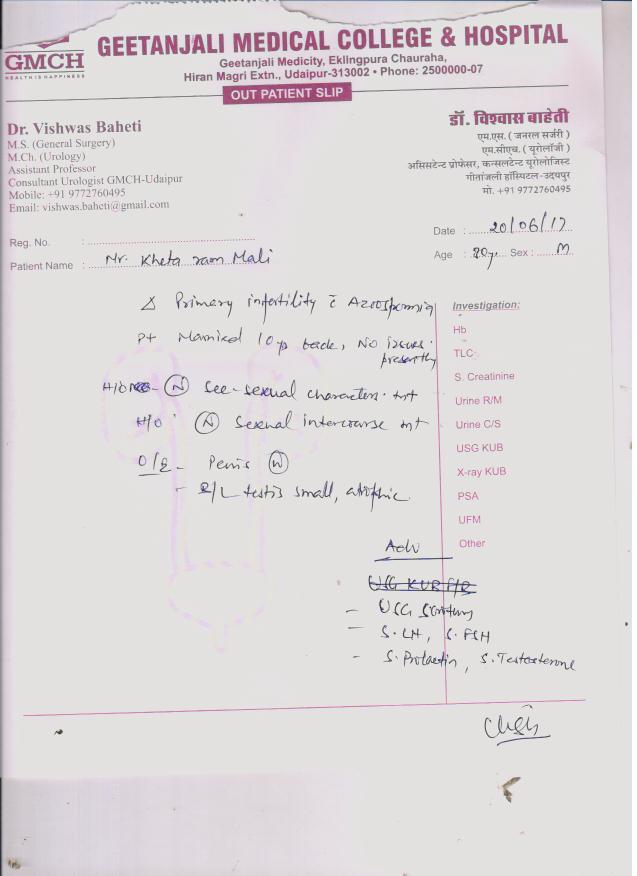 GMCH
HEALTH IS HAPPINESS
GEETANJALI MEDICAL COLLEGE & HOSPITAL
Geetanjali Medicity, Eklingpura Chauraha,
Hiran Magri Extn., Udaipur-313002 • Phone: 2500000-07
OUT PATIENT SLIP
Dr. Vishwas Baheti
M.S. (General Surgery)
M.Ch. (Urology)
Assistant Professor
Consultant Urologist GMCH-Udaipur
Mobile: +91 9772760495
Email: vishwas.baheti@gmail.com
डॉ. विश्वास बाहेती
एम.एस. ( जनरल सर्जरी )
एम.सीएच. ( यूरोलॉजी )
असिसटेन्ट प्रोफेसर, कन्सलटेन्ट यूरोलोजिस्ट
गीतांजली हॉस्पिटल-उदयपुर
मो. +91 9772760495
Reg. No. :
Date : 20/06/17
Patient Name : Mr. Kheta ram Mali
Age : Sex : M
Primary infertility c Azoospermia
Pt Married 10 yr back, No issues
presently
H/O (N) Sec-sexual characters
H/O (N) Sexual intercourse
O/E - Penis (N)
- B/L testis small, atrophic.
Investigation:
Hb
TLC
S. Creatinine
Urine R/M
Urine C/S
USG KUB
X-ray KUB
PSA
UFM
Other
Adv
USG KUB
- USG Scrotum
- S. LH, S. FSH
- S. Prolactin, S. Testosterone